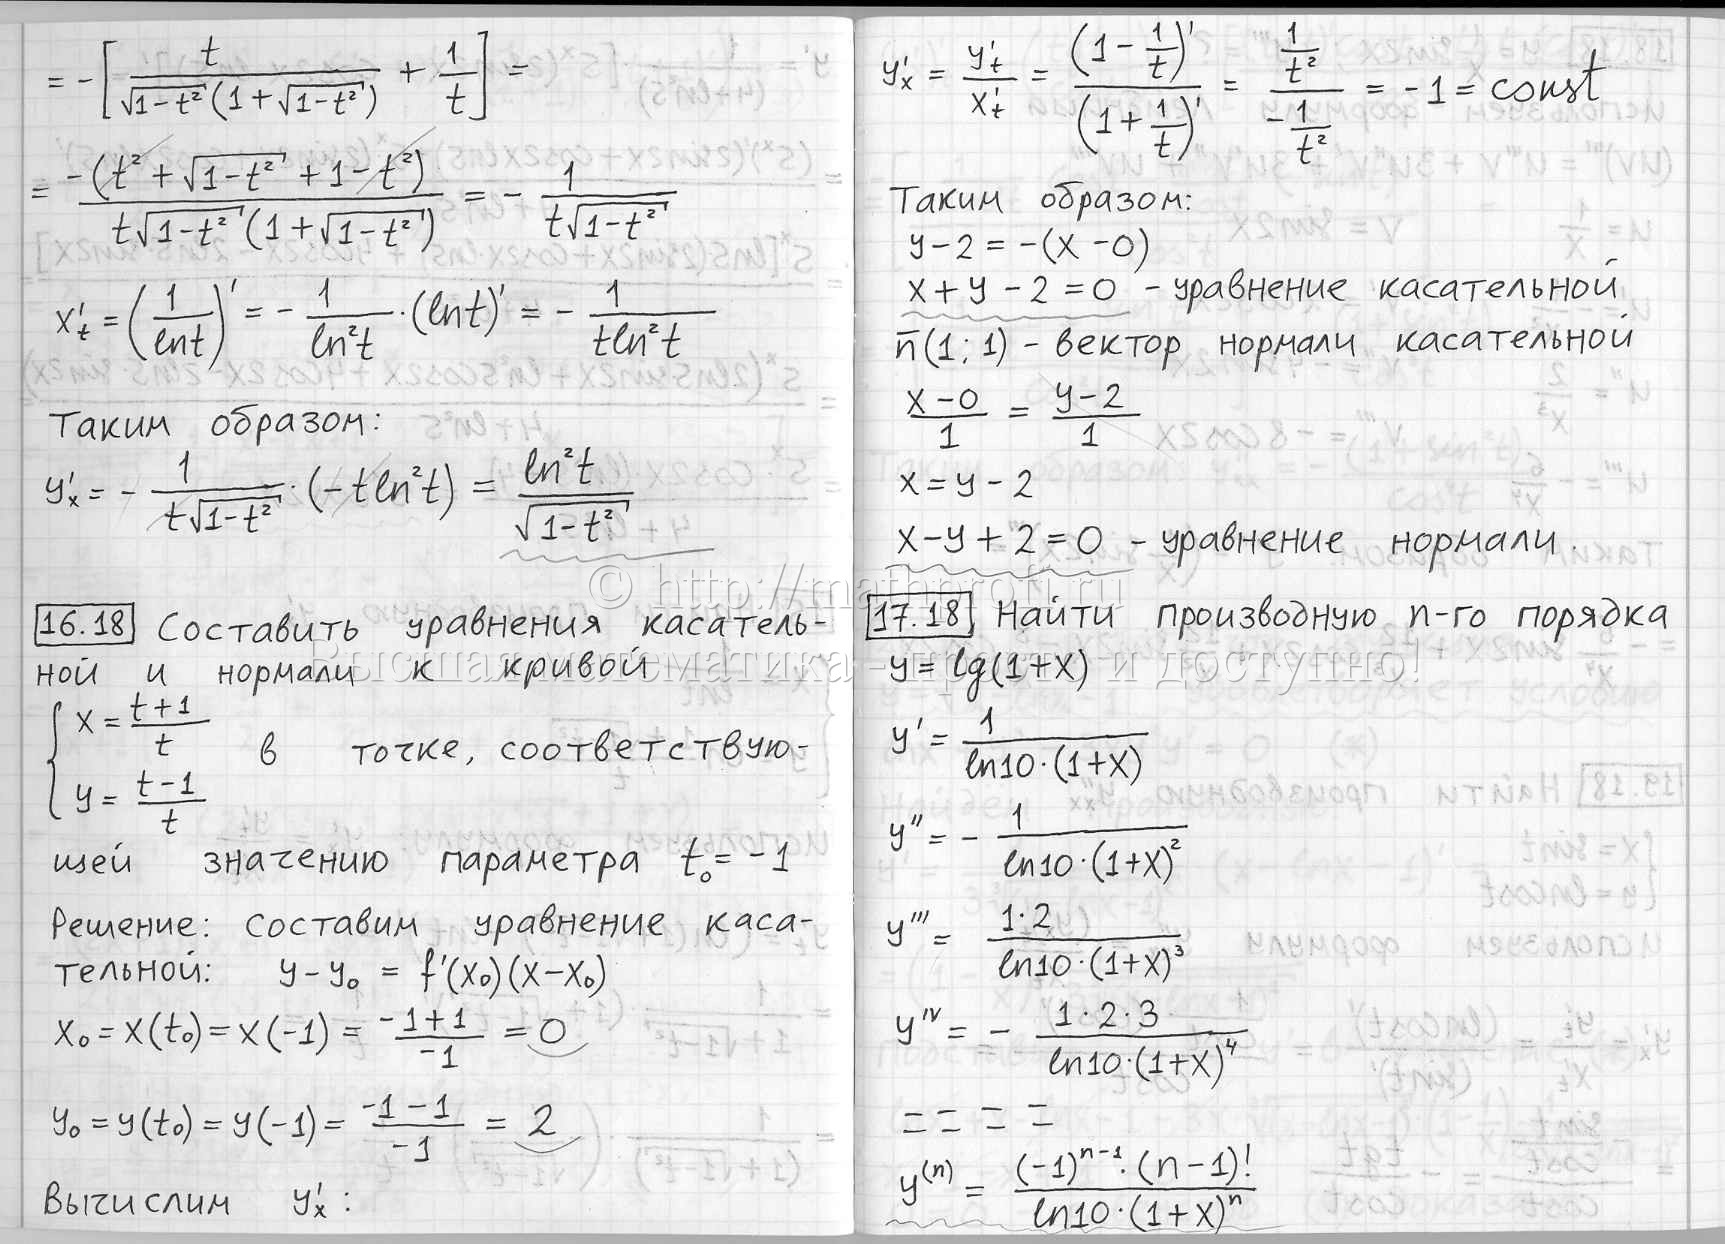 = -[t/(√(1-t²)(1+√(1-t²))) + 1/t] =
= -(t²+√(1-t²)+1-t²)/(t√(1-t²)(1+√(1-t²))) = - 1/(t√(1-t²))
x't = (1/lnt)' = - 1/ln²t · (lnt)' = - 1/(tln²t)
Таким образом:
y'x = - 1/(t√(1-t²)) · (-tln²t) = ln²t/√(1-t²)
16.18 Составить уравнения касатель-
ной и нормали к кривой
{ x = (t+1)/t
y = (t-1)/t в точке, соответствую-
щей значению параметра t₀ = -1
Решение: составим уравнение каса-
тельной: y-y₀ = f'(x₀)(x-x₀)
x₀ = x(t₀) = x(-1) = (-1+1)/-1 = 0
y₀ = y(t₀) = y(-1) = (-1-1)/-1 = 2
Вычислим y'x:
y'x = y't/x't = (1-1/t)'/(1+1/t)' = (1/t²)/(-1/t²) = -1 = const
Таким образом:
y-2 = -(x-0)
x+y-2=0 - уравнение касательной
n̄(1;1) - вектор нормали касательной
(x-0)/1 = (y-2)/1
x = y-2
x-y+2=0 - уравнение нормали.
17.18 Найти производную n-го порядка
y = lg(1+x)
y' = 1/(ln10·(1+x))
y'' = - 1/(ln10·(1+x)²)
y''' = 1·2/(ln10·(1+x)³)
y^IV = - 1·2·3/(ln10·(1+x)⁴)
= = = =
y⁽ⁿ⁾ = (-1)ⁿ⁻¹·(n-1)!/(ln10·(1+x)ⁿ)
© http://mathprofi.ru
Высшая математика – просто и доступно!